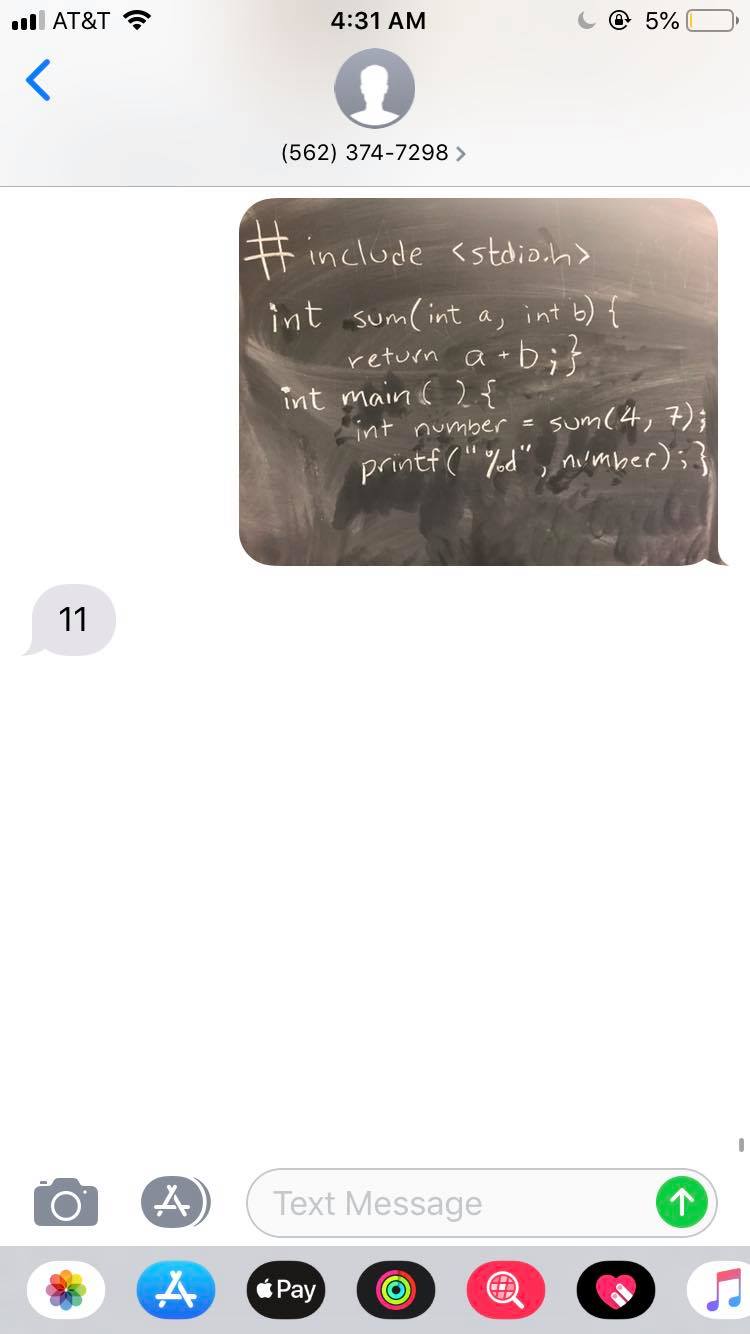 AT&T 4:31 AM 5%
(562) 374-7298
#include <stdio.h>
int sum(int a, int b) {
return a + b ; }
int main( ) {
int number = sum(4, 7);
printf("%d", number) ; }
11
Text Message
Pay